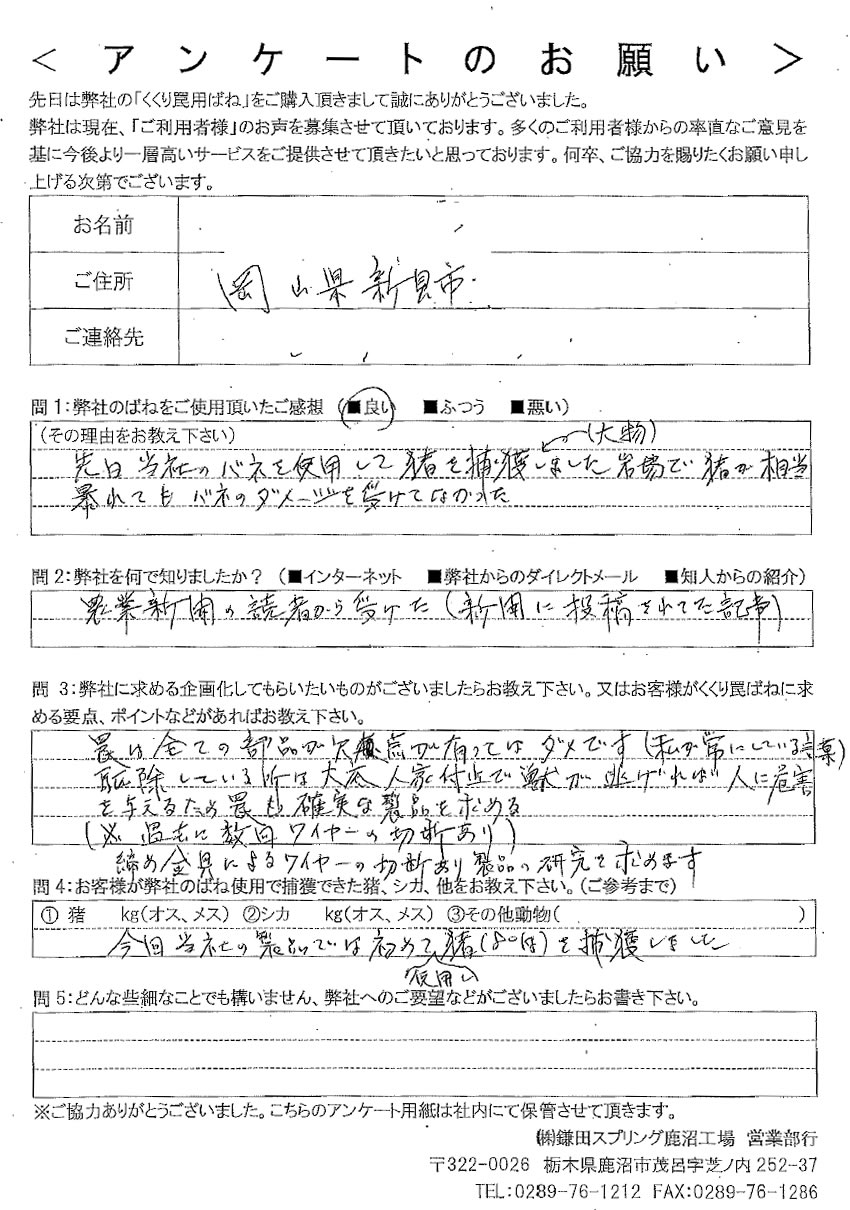 ＜アンケートのお願い＞
先日は弊社の「くくり罠用ばね」をご購入頂きまして誠にありがとうございました。
弊社は現在、「ご利用者様」のお声を募集させて頂いております。多くのご利用者様からの率直なご意見を
基に今後より一層高いサービスをご提供させて頂きたいと思っております。何卒、ご協力を賜りたくお願い申し
上げる次第でございます。
お名前
ご住所 岡山県新見市
ご連絡先
問1:弊社のばねをご使用頂いたご感想 (■良い ■ふつう ■悪い)
(その理由をお教え下さい)
(大物)
先日当社のバネを使用して猪を捕獲しました岩場で猪が相当
暴れてもバネのダメージを受けてなかった
問2:弊社を何で知りましたか? (■インターネット ■弊社からのダイレクトメール ■知人からの紹介)
農業新聞の読者から受けた(新聞に投稿されてた記事)
問 3:弊社に求める企画化してもらいたいものがございましたらお教え下さい。又はお客様がくくり罠ばねに求
める要点、ポイントなどがあればお教え下さい。
罠は全ての部品が欠点が有ってはダメです(私が常にしている言葉)
駆除している所は大底人家付近で獣が逃げれば人に危害
を与えるため罠も確実な製品を求める
(※過去に数回ワイヤーの切断あり)
締め金具によるワイヤーの切断あり製品の研究を求めます
問4:お客様が弊社のばね使用で捕獲できた猪、シカ、他をお教え下さい。(ご参考まで)
① 猪 kg(オス、メス) ②シカ kg(オス、メス) ③その他動物( )
今回当社の製品では初めて猪(80㎏)を捕獲しました
使用し
問5:どんな些細なことでも構いません、弊社へのご要望などがございましたらお書き下さい。
※ご協力ありがとうございました。こちらのアンケート用紙は社内にて保管させて頂きます。
㈱鎌田スプリング鹿沼工場 営業部行
〒322-0026 栃木県鹿沼市茂呂字芝ノ内 252-37
TEL:0289-76-1212 FAX:0289-76-1286